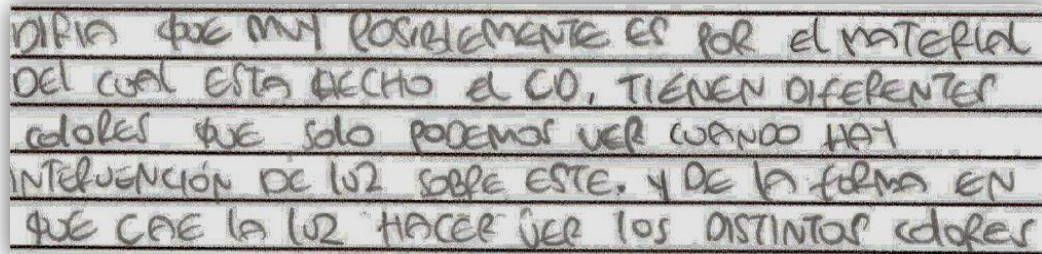 DIRIA QUE MUY POSIBLEMENTE ES POR El MATERIAL
DEl CUAl ESTA HECHO El CD, TIENEN DIFERENTES
colores QUE Solo PODEMOS VER CUANDO HAY
INTERVENCIÓN DE luz SOBRE ESTE. Y DE lA forma EN
QUE CAE lA luz HACER VER los DISTINTOS colores